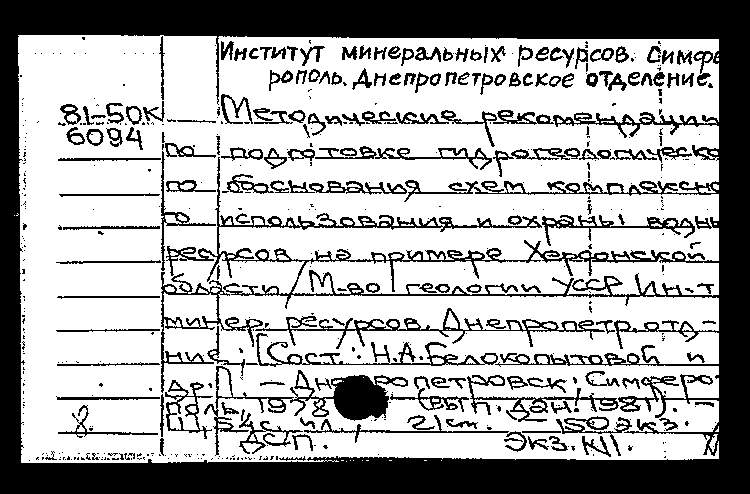 Институт минеральных ресурсов. Симфе
рополь. Днепропетровское отделение.
81-50К Методические рекомендации
6094
по подготовке гидрогеологическо
го обоснования схем комплексно
го использования и охраны водны
ресурсов на примере Херсонской
области / М-во геологии УССР, Ин-т
минер. ресурсов. Днепропетр. отд-
ние; [Сост.: Н.А. Белокопытовой и
др.]. - Днепропетровск; Симферо-
поль, 1978 (вып. дан. 1981). -
8. 54 с., ил.; 21 см. - 150 экз.
ДСП. Экз. №1.